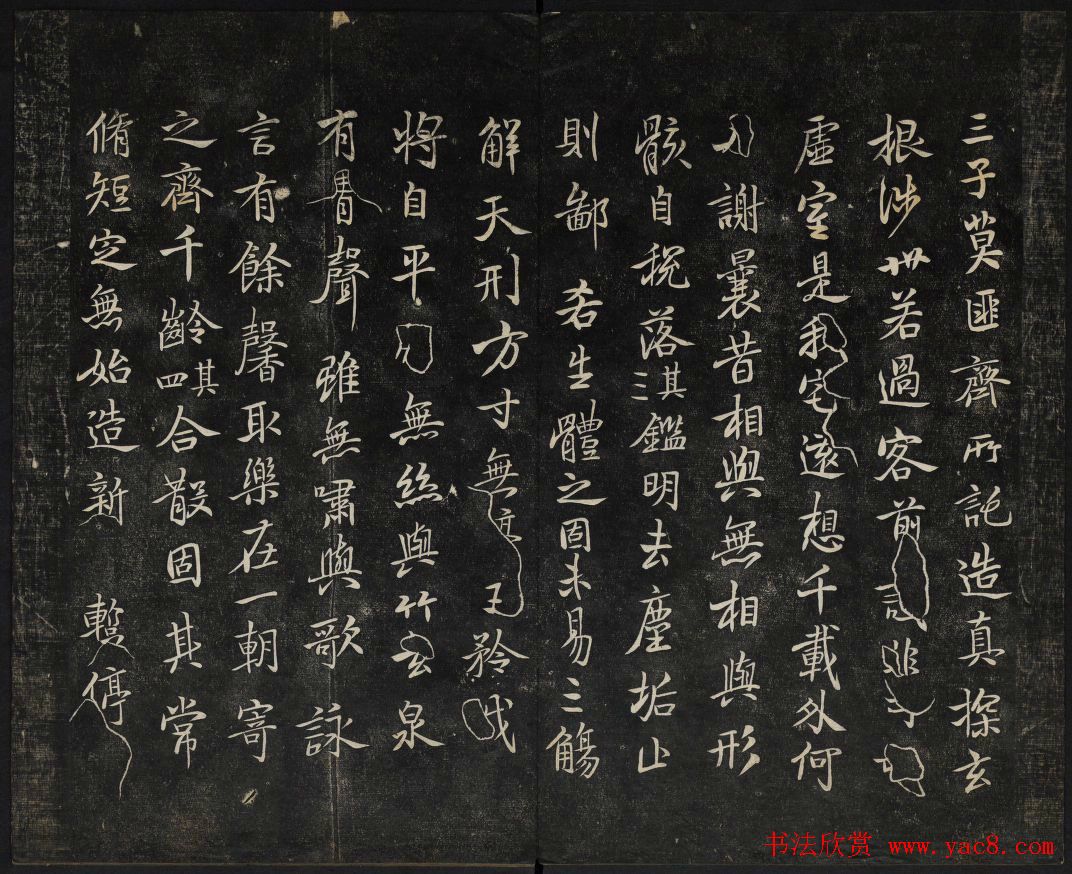 三子莫匪齊所託造真探玄
根涉世若過客前非
虛室是我宅遠想千載外何
謝曩昔相與無相與形
骸自稅落其三鑑明去塵垢止
則鄙吝生體之固未易三觴
解天刑方寸無矜伐
將自平無絲與竹玄泉
有聲雖無嘯與歌詠
言有餘馨取樂在一朝寄
之齊千齡其四合散固其常
脩短定無始造新暫停
书法欣赏 www.yac8.com